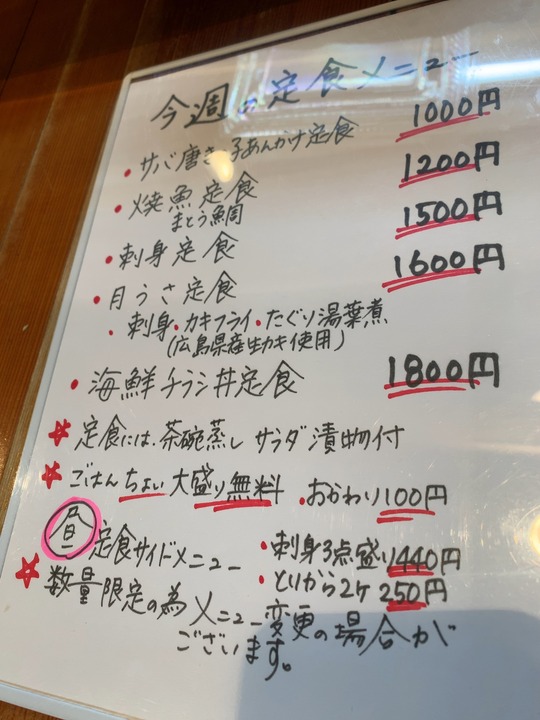 今週の定食メニュー
・サバ唐き子あんかけ定食 1000円
・焼魚定食 1200円
まとう鯛
・刺身定食 1500円
・月うさ定食 1600円
・刺身・カキフライ・たぐり湯葉煮
(広島県産生カキ使用)
・海鮮チラシ丼定食 1800円
☆定食には、茶碗蒸し サラダ 漬物付
☆ごはんちょい大盛り無料 ・おかわり100円
昼 定食サイドメニュー ・刺身3点盛り440円
・とりから2ケ 250円
☆数量限定の為メニュー変更の場合が
ございます。